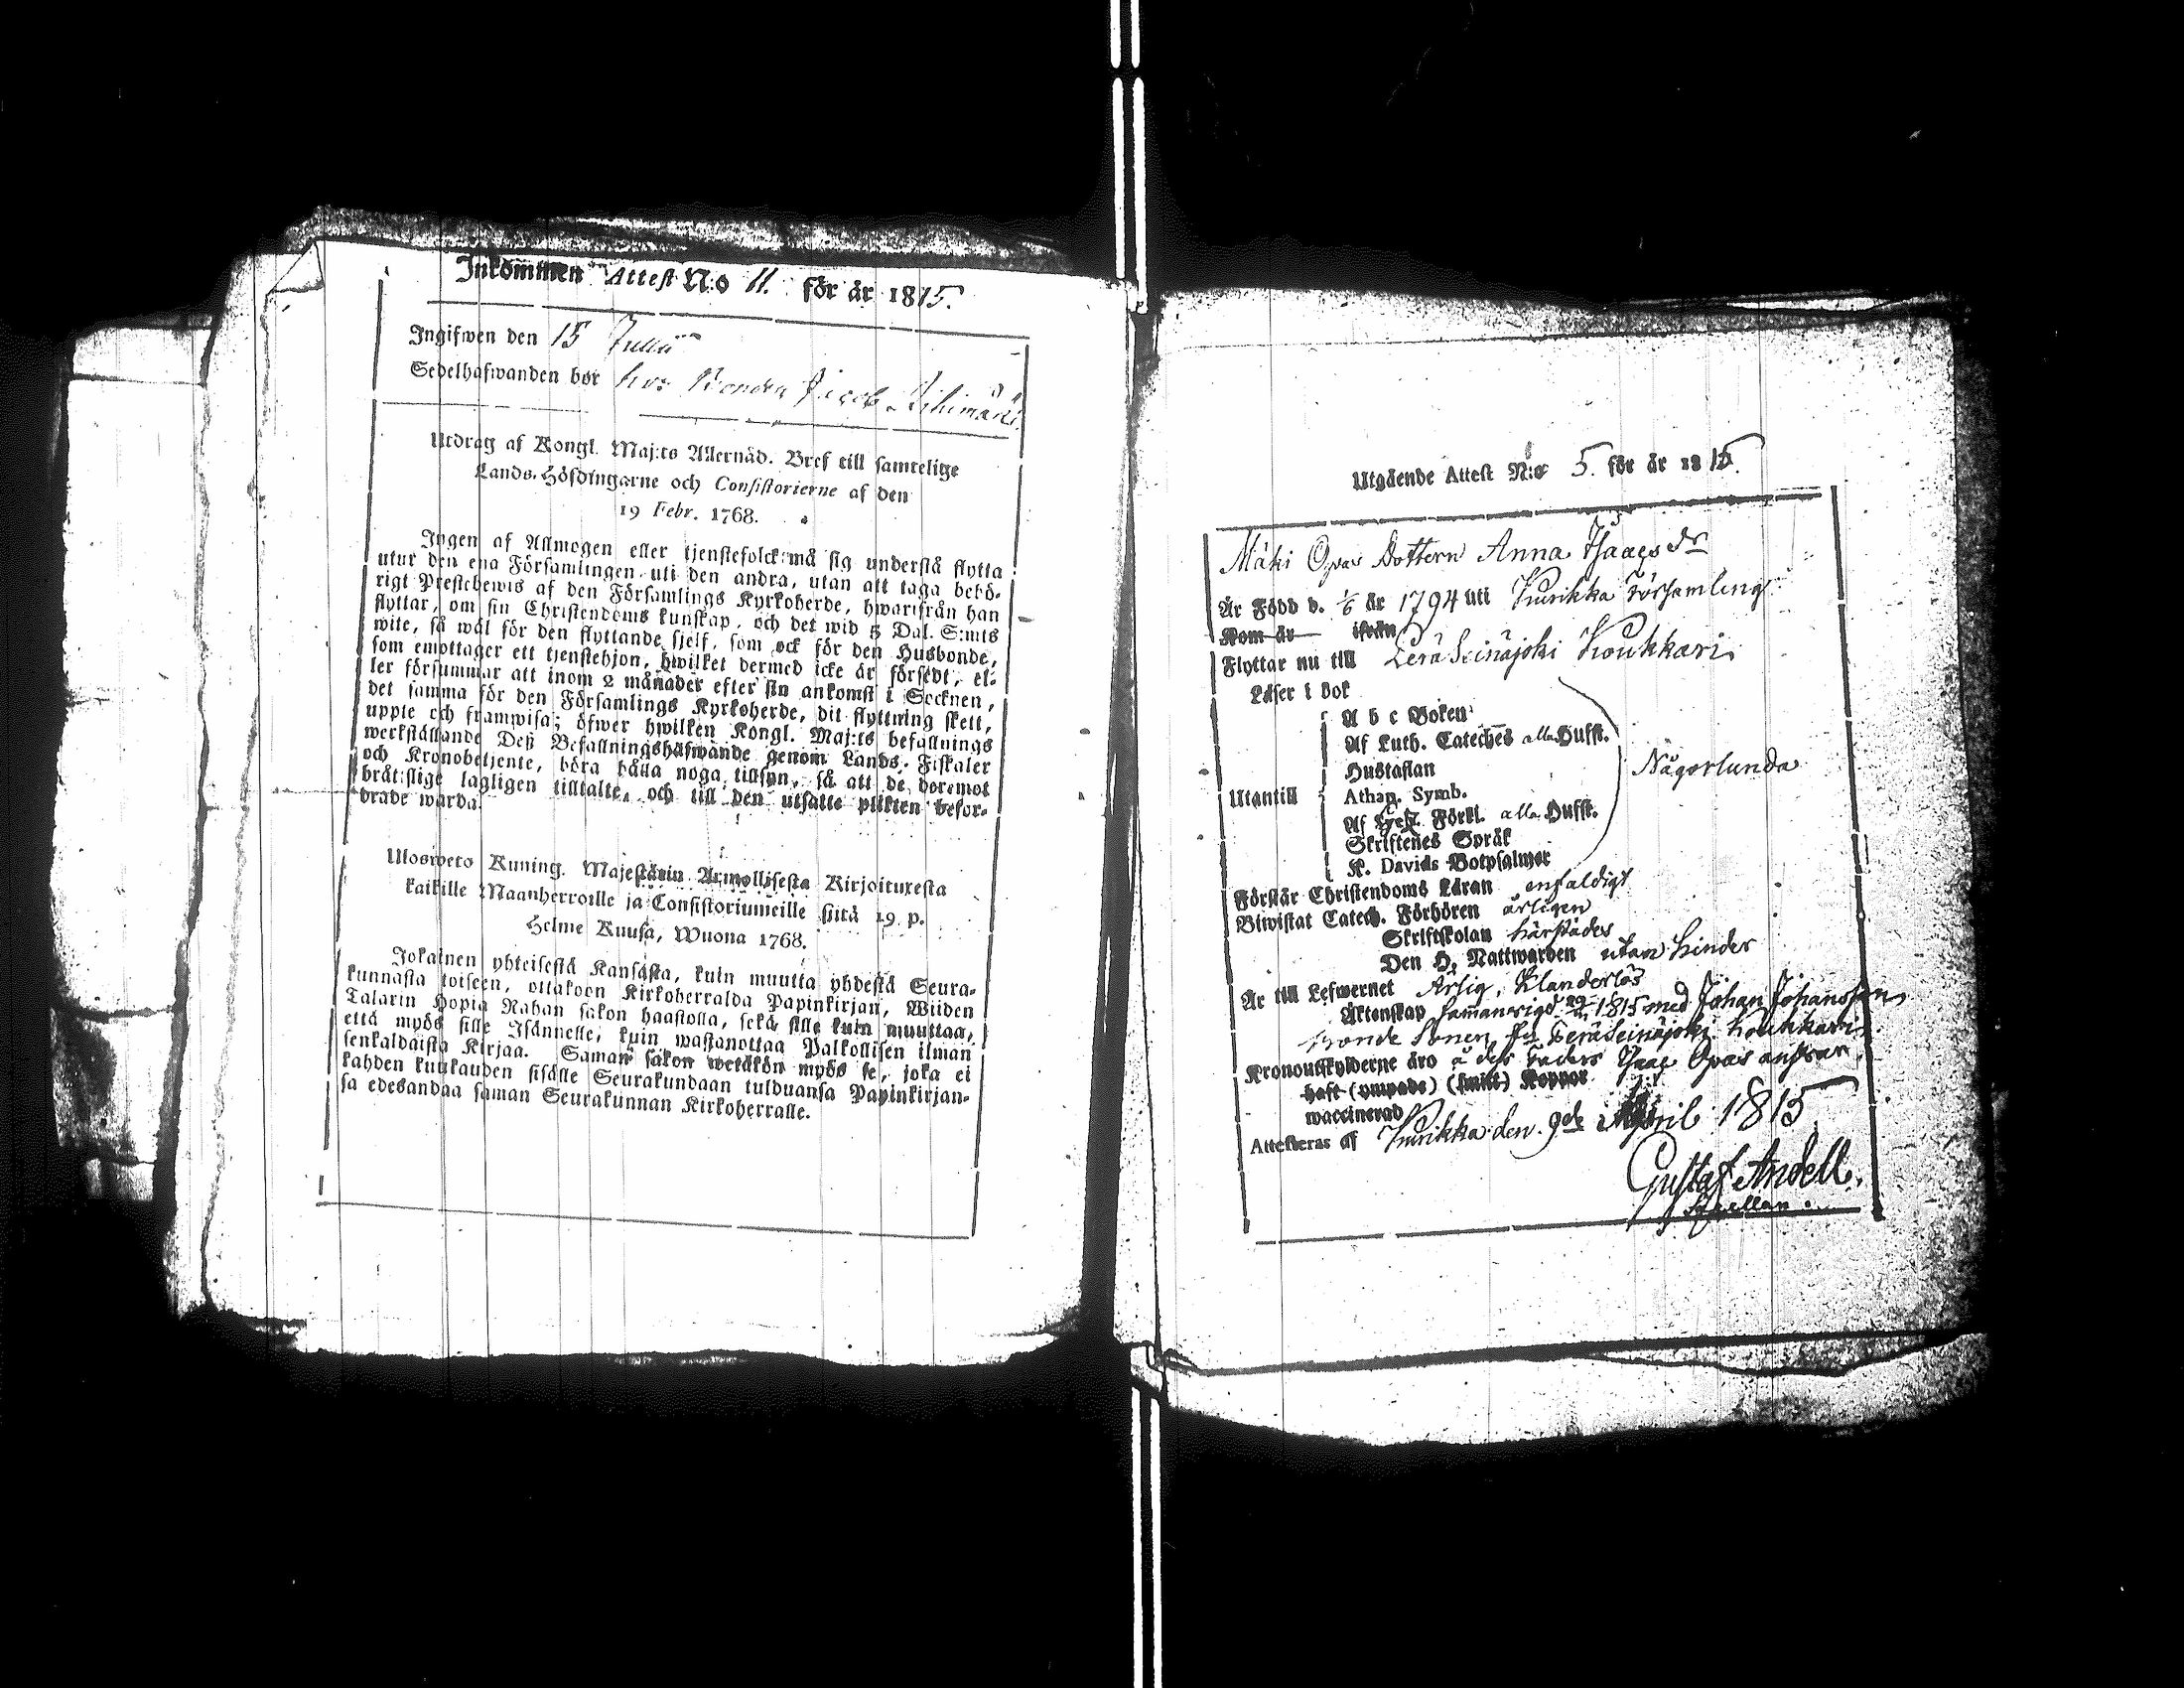 Inkommen Attest N:o 11. för år 1815.
Ingifwen den 15 Julii
Sedelhafwanden bor hos Bonden Jacob
Utdrag af Kongl. Maj:ts Allernåd. Bref till samtelige
Lands-Höfdingarne och Consistorierne af den
19 Febr. 1768.
Ingen af Allmogen eller tjenstefolck må sig understå flytta
utur den ena Församlingen uti den andra, utan att taga behö-
rigt Prestebewis af den Församlings Kyrkoherde, hwarifrån han
flyttar, om sin Christendoms kunskap, och det wid 5 Dal. S:mts
wite, så wäl för den flyttande sjelf, som ock för den Husbonde,
som emottager ett tjenstehjon, hwilket dermed icke är försedt, el-
ler försummar att inom 2 månader efter sin ankomst i Socknen,
det samma för den Församlings Kyrkoherde, dit flyttning skett,
uppte och framwisa; öfwer hwilken Kongl. Maj:ts befallnings
werkställande Deß Befallningshafwande genom Lands-Fiskaler
och Kronobetjente, böra hålla noga tillsyn, så att de deremot
bråtslige lagligen tilltalte, och till den utsatte plikten befor-
drade warda.
Ulosweto Kuning. Majestätin Armollisesta Kirjoituxesta
kaikille Maanherroille ja Consistoriumeille siitä 19 p.
Helme Kuusa, Wuona 1768.
Jokainen yhteisestä Kansasta, kuin muutta yhdestä Seura-
kunnasta toiseen, ottakoon Kirkoherralda Papinkirjan, Wiiden
Talarin Hopia Rahan sakon haastolla, sekä sille kuin muuttaa,
että myös sille Isännelle, kuin wastanottaa Palkollisen ilman
senkaldaista Kirjaa. Saman sakon wetäkön myös se, joka ei
kahden kuukauden sisälle Seurakundaan tulduansa Papinkirjan-
sa edesandaa saman Seurakunnan Kirkoherralle.
Utgående Attest N:o 5. för år 1815.
Mäki Opas Dottern Anna Isaacs dr
Är Född d. 1/6 år 1794 uti Kurikka Församling
Kom år ifrån
Flyttar nu till Perä Seinäjoki Koukkari
Läser i bok
A b c Boken
Af Luth. Cateches alla Hufst.
Hustaflan
Utantill Athan. Symb.
Någorlunda
Af Förkl. alla Hufst.
Skriftenes Språk
K. Davids Botpsalmer
Förstår Christendoms Läran enfaldigt
Biwistat Catech. Förhören årligen
Skriftskolan härstädes
Den H. Nattwarden utan hinder
Är till Lefwernet Ärlig, Klanderlös
Äktenskap 1815 med Johan Johansson
Bonde Sonen Perä Seinäjoki Koukkari
Kronoutskylderne äro å deß faders Isaac Opas answar
haft (ympade) (smitt) Koppor
waccinerad
Attesteras af Kurikka den 9de April 1815
Gustaf Andell.